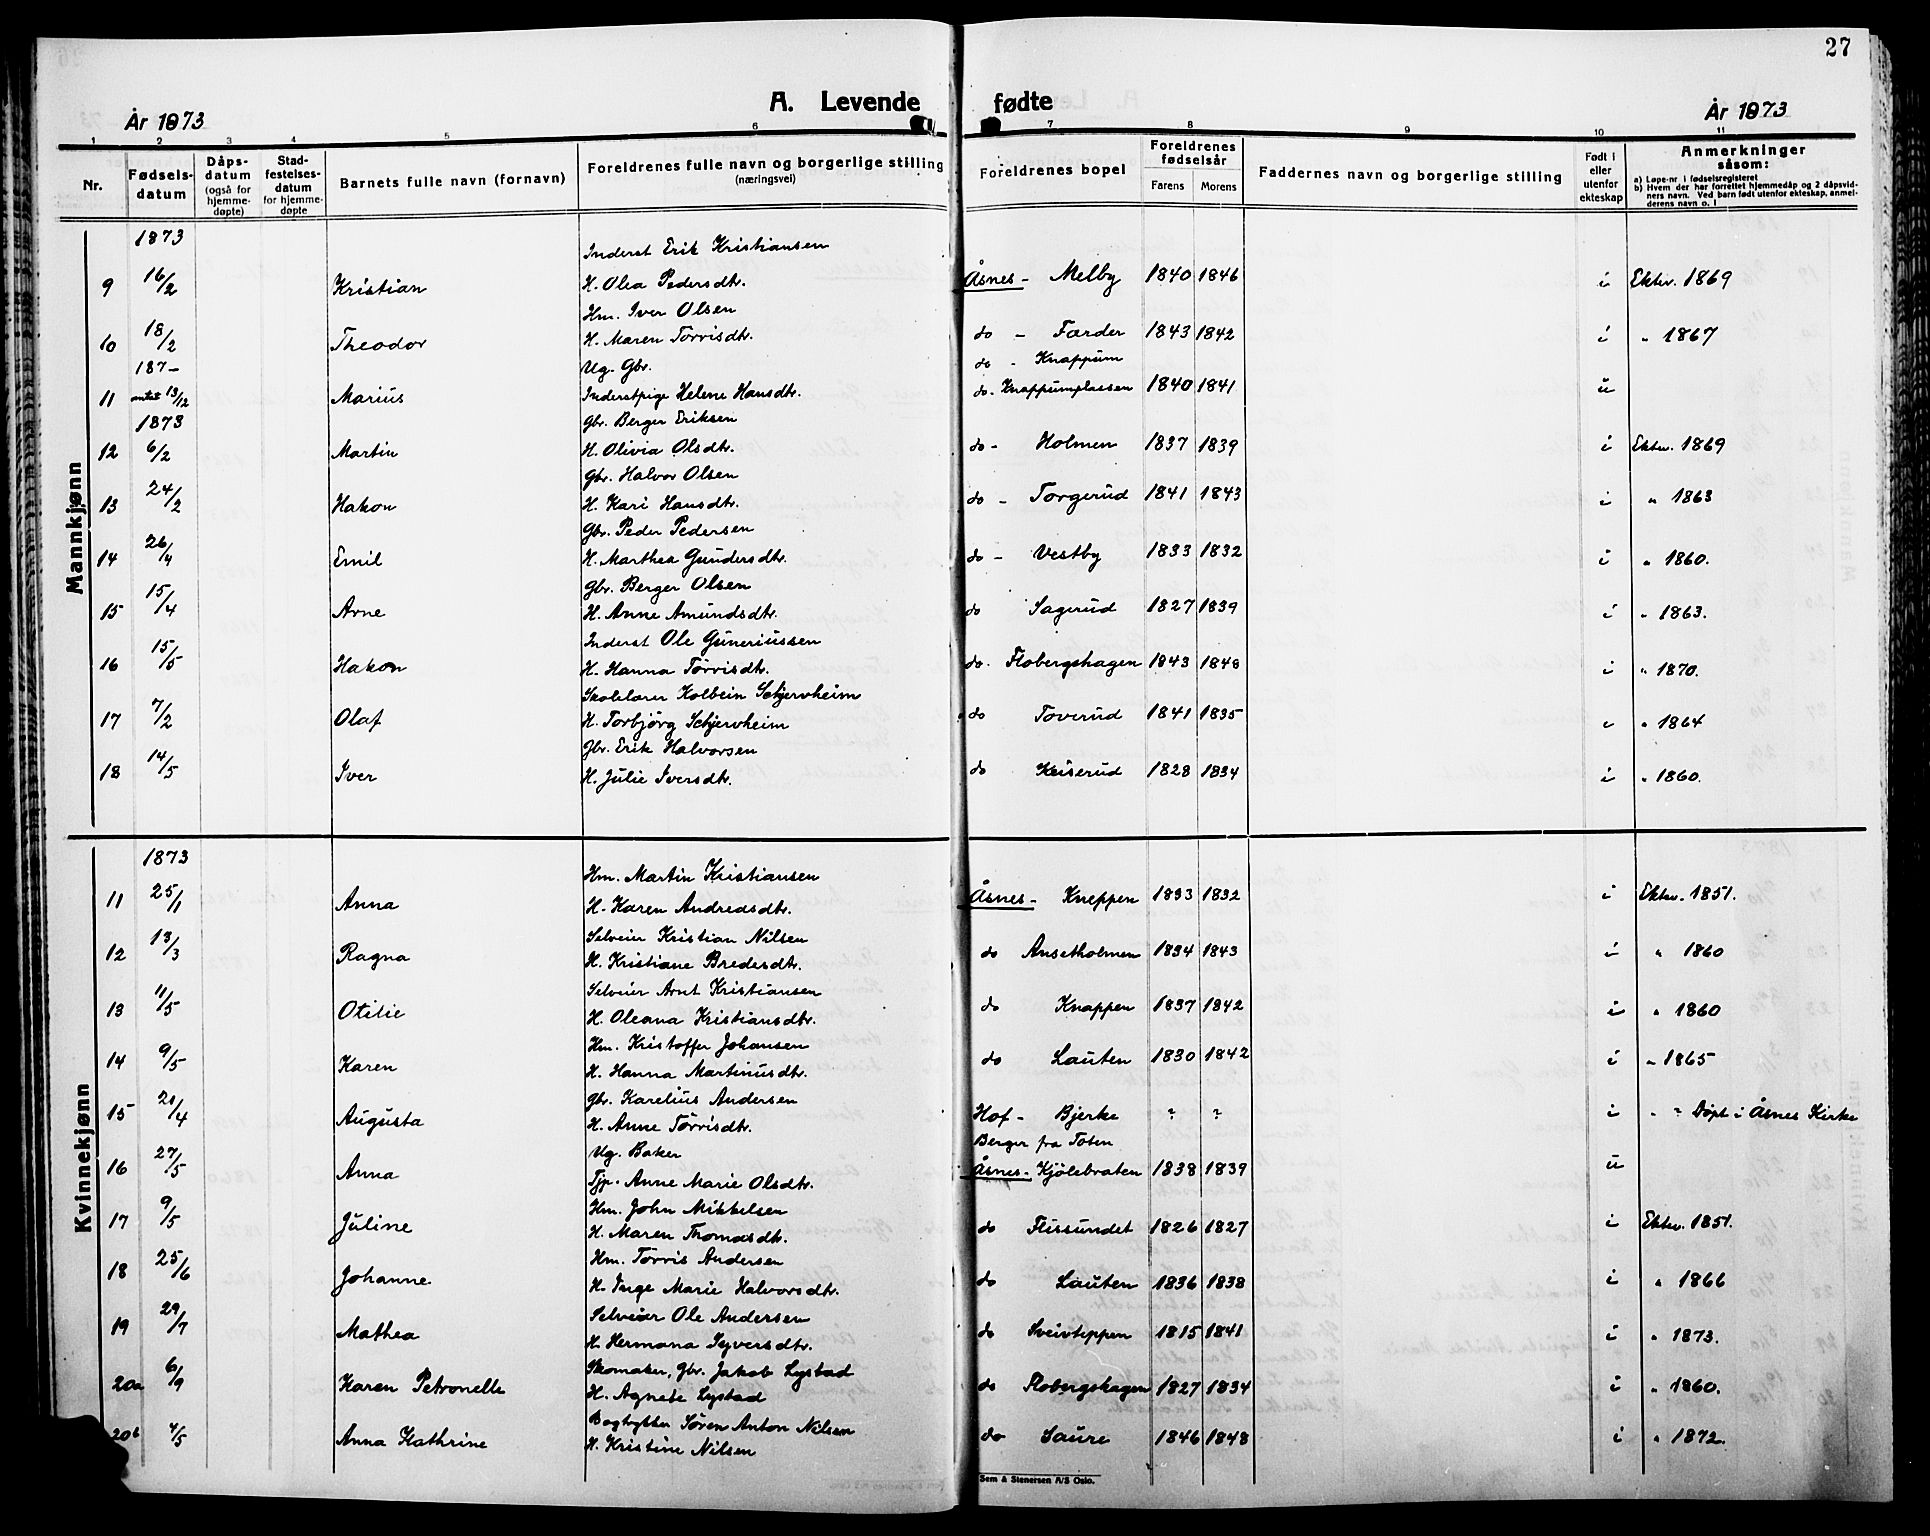 27
A. Levende fødte
År 1873
År 1873
1 2 3 4 5 6 7 8 9 10 11
Nr. Fødsels-datum Dåps-datum (også for hjemme-døpte) Stad-festelses-datum for hjemme-døpte Barnets fulle navn (fornavn) Foreldrenes fulle navn og borgerlige stilling (næringsvei) Foreldrenes bopel Foreldrenes fødselsår Farens Morens Faddernes navn og borgerlige stilling Født i eller utenfor ekteskap Anmerkninger såsom:
a) Løpe-nr i fødselsregisteret
b) Hvem der har forrettet hjemmedåp og 2 dåpsvid-
ners navn. Ved barn født utenfor ekteskap, anmel-
derens navn o. l
Mannkjønn
1873 Inderst Erik Kristiansen
9 16/2 Kristian H. Olea Pedersdtr. Åsnes - Melby 1840 1846 i Ektev. 1869
Hm. Iver Olsen
10 18/2 Theodor H. Maren Torrisdtr. do - Færder 1843 1842 i " 1867
187- Ug. Gbr. do - Knappum
11 antat 13/12 Marius Inderstpige Helene Hansdtr. do - Knappumplassen 1840 1841 u
1873 Gbr. Berger Eriksen
12 6/2 Martin H. Olivia Olsdtr. do - Holmen 1837 1839 i Ektev. 1869
Gbr. Halvor Olsen
13 24/2 Hakon H. Kari Hansdtr. do - Torgerud 1841 1843 i " 1863
Gbr. Peder Pedersen
14 26/4 Emil H. Marthea Gundersdtr. do - Vestby 1833 1832 i " 1860.
Gbr. Berger Olsen
15 15/4 Arne H. Anne Amundsdtr. do Sagerud 1827 1839 i " 1863.
Inderst Ole Guneriussen
16 15/5 Hakon H. Hanna Tørrisdtr. do. Flobergshagen 1843 1848 i " 1870.
Skolelærer Kolbein Schjervheim
17 7/2 Olaf H. Torbjörg Schjervheim do Toverud 1841 1835 i " 1864
Gbr. Erik Halvorsen
18 14/5 Iver H. Julie Iversdtr. do Keiserud 1828 1834 i " 1860.
Kvinnekjønn
1873 Hm. Martin Kristiansen
11 25/1 Anna H. Karen Andreasdtr. Åsnes - Kneppen 1833 1832 i Ektev. 1851.
Selveier Kristian Nilsen
12 13/3 Ragna H. Kristiane Bredesdtr. do Ansetholmen 1834 1843 i " 1860
Selveier Arnt Kristiansen
13 11/5 Otilie H. Oleana Kristiansdtr. do Knappen 1837 1842 i " 1860
Hm. Kristoffer Johansen
14 9/5 Karen H. Hanna Martinusdtr. do Lauten 1830 1842 i " 1865
Gbr. Karelius Andersen
15 21/4 Augusta H. Anne Tørrisdtr. Hof - Bjerke ? ? i " ? Døpt i Åsnes Kirke
Ug. Baker Berger fra Toten
16 27/5 Anna Tjp. Anne Marie Olsdtr. Åsnes - Kjölebraten 1838 1839 u
Hm. John Mikkelsen
17 9/5 Juline H. Maren Thomasdtr. do Flissundet 1826 1827 i Ektev. 1851.
Hm. Tørris Andersen
18 25/6 Johanne H. Inge Marie Halvorsdtr. do Lauten 1836 1838 i " 1866
Selveier Ole Andersen
19 29/7 Mathea H. Hermana Syversdtr. do Sveivteppen 1815 1841 i " 1873.
Skomaker, Gbr. Jakob Lystad
20a 6/9 Karen Petronelle H. Agnete Lystad do Flobergshagen 1827 1834 i " 1860.
Bogtrykker Søren Anton Nilsen
20b 4/5 Anna Kathrine H. Kristine Nilsen do Saure 1846 1848 i " 1872.
Sem & Stenersen A/S Oslo.